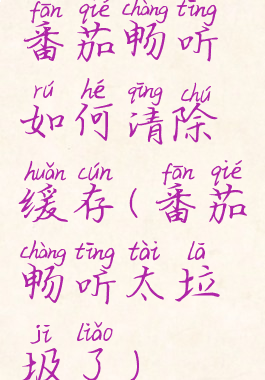 fān qié chàng tīng
番茄畅听
rú hé qīng chú
如何清除
huǎn cún fān qié
缓存(番茄
chàng tīng tài lā
畅听太垃
jī liǎo
圾了)